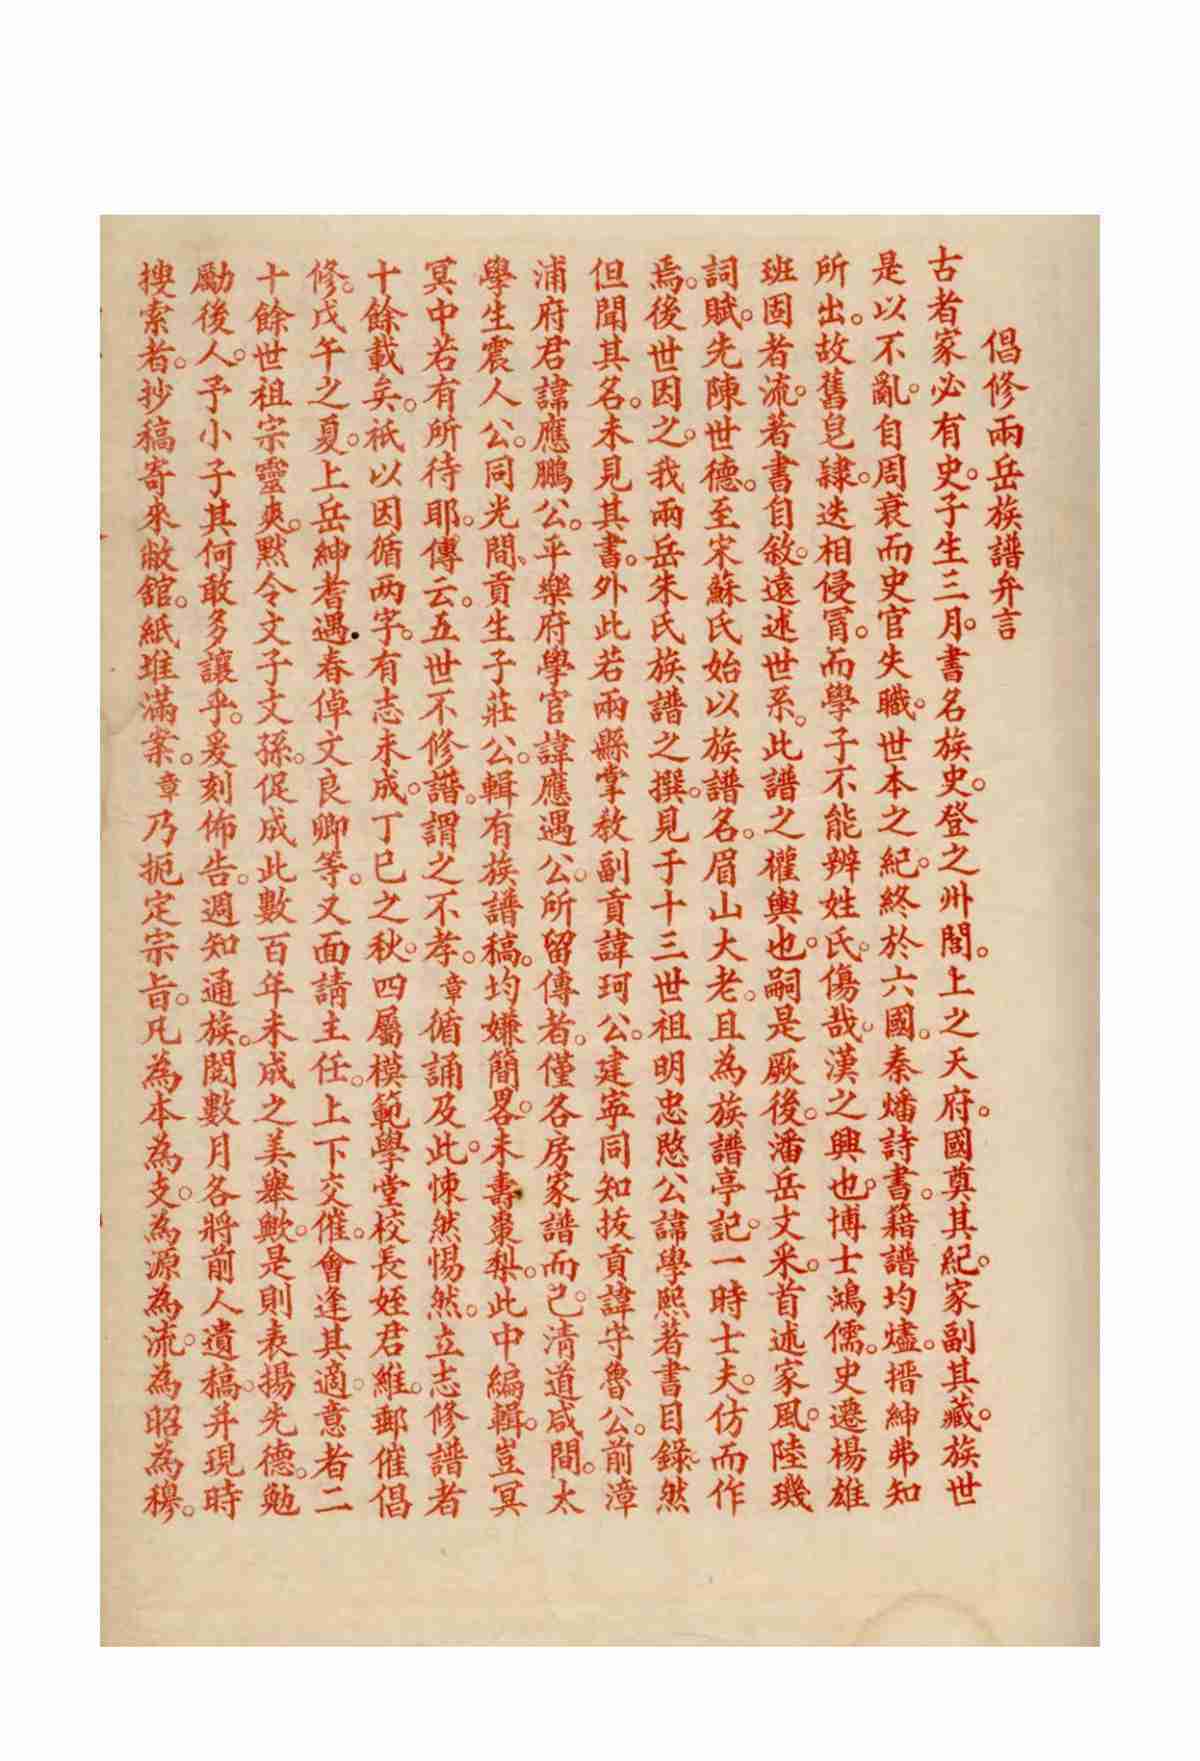 倡修兩岳族譜弁言
古者家必有史。子生三月。書名族史。登之州閭。上之天府。國奠其紀。家副其藏。族世
是以不亂。自周衰而史官失職。世本之紀。終於六國。秦燔詩書。籍譜均燼。搢紳弗知
所出。故舊皂隸。迭相侵冒。而學子不能辨姓氏。傷哉。漢之興也。博士鴻儒。史遷楊雄
班固者流。著書自敘。遠述世系。此譜之權輿也。嗣是厥後。潘岳文采。首述家風。陸璣
詞賦。先陳世德。至宋蘇氏始以族譜名。眉山大老。且為族譜亭記。一時士夫。仿而作
焉。後世因之。我兩岳朱氏族譜之撰。見于十三世祖明忠愍公諱學熙著書目錄。然
但聞其名。未見其書。外此若兩縣掌教副貢諱珂公。建寧同知拔貢諱守魯公。前漳
浦府君諱應鵬公。平樂府學官諱應遇公。所留傳者。僅各房家譜而已。清道咸間。太
學生震人公。同光間、貢生子莊公。輯有族譜稿。均嫌簡畧。未壽棗梨。此中編輯。豈冥
冥中若有所待耶。傳云。五世不修譜。謂之不孝。章循誦及此。悚然惕然。立志修譜者
十餘載矣。祇以因循两字。有志未成。丁巳之秋。四屬模範學堂校長姪君維。郵催倡
修。戊午之夏。上岳紳耆遇春倬文良卿等。又面請主任。上下交催。會逢其適。意者二
十餘世祖宗靈爽。默令文子文孫。促成此數百年未成之美舉歟。是則表揚先德。勉
勵後人。予小子其何敢多讓乎。爰刻佈告。週知通族。閱數月各將前人遺稿。并現時
搜索者。抄稿寄來敝館。紙堆滿案。章乃扼定宗旨。凡為本為支。為源為流。為昭為穆。